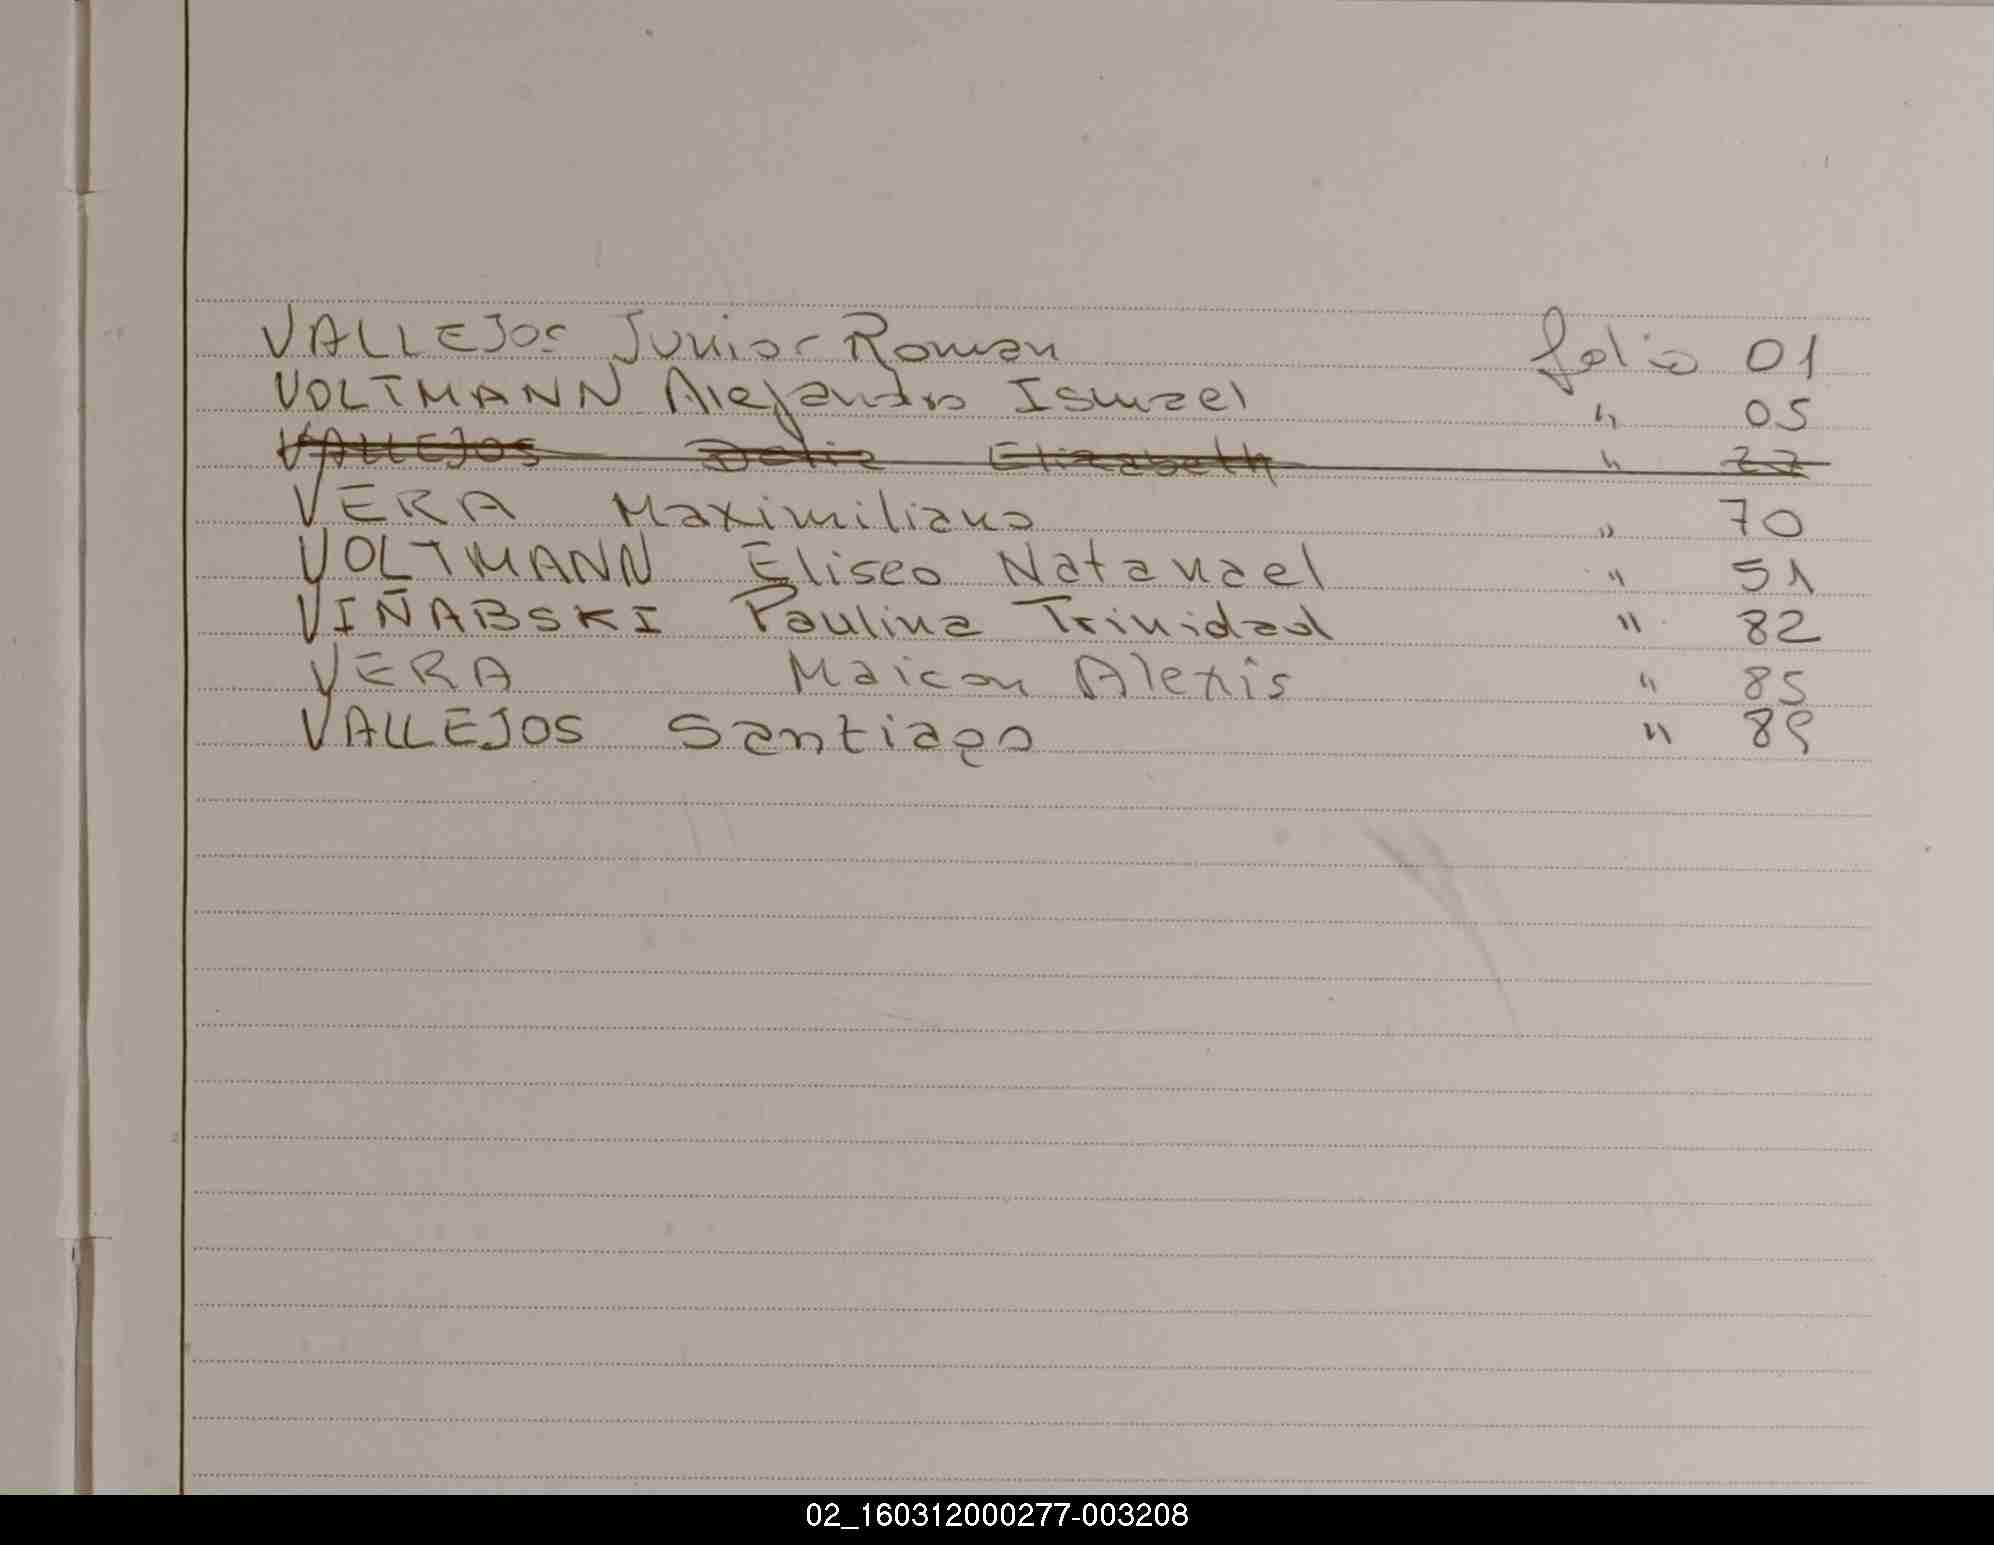 VALLEJOS Junior Roman folio 01
VOLTMANN Alejandro Ismael " 05
VALLEJOS Delia Elizabeth "
VERA Maximiliano " 70
VOLTMANN Eliseo Natanael " 51
VIÑABSKI Paulina Trinidad " 82
VERA Maicon Alexis " 85
VALLEJOS Santiago " 89
02_160312000277-003208